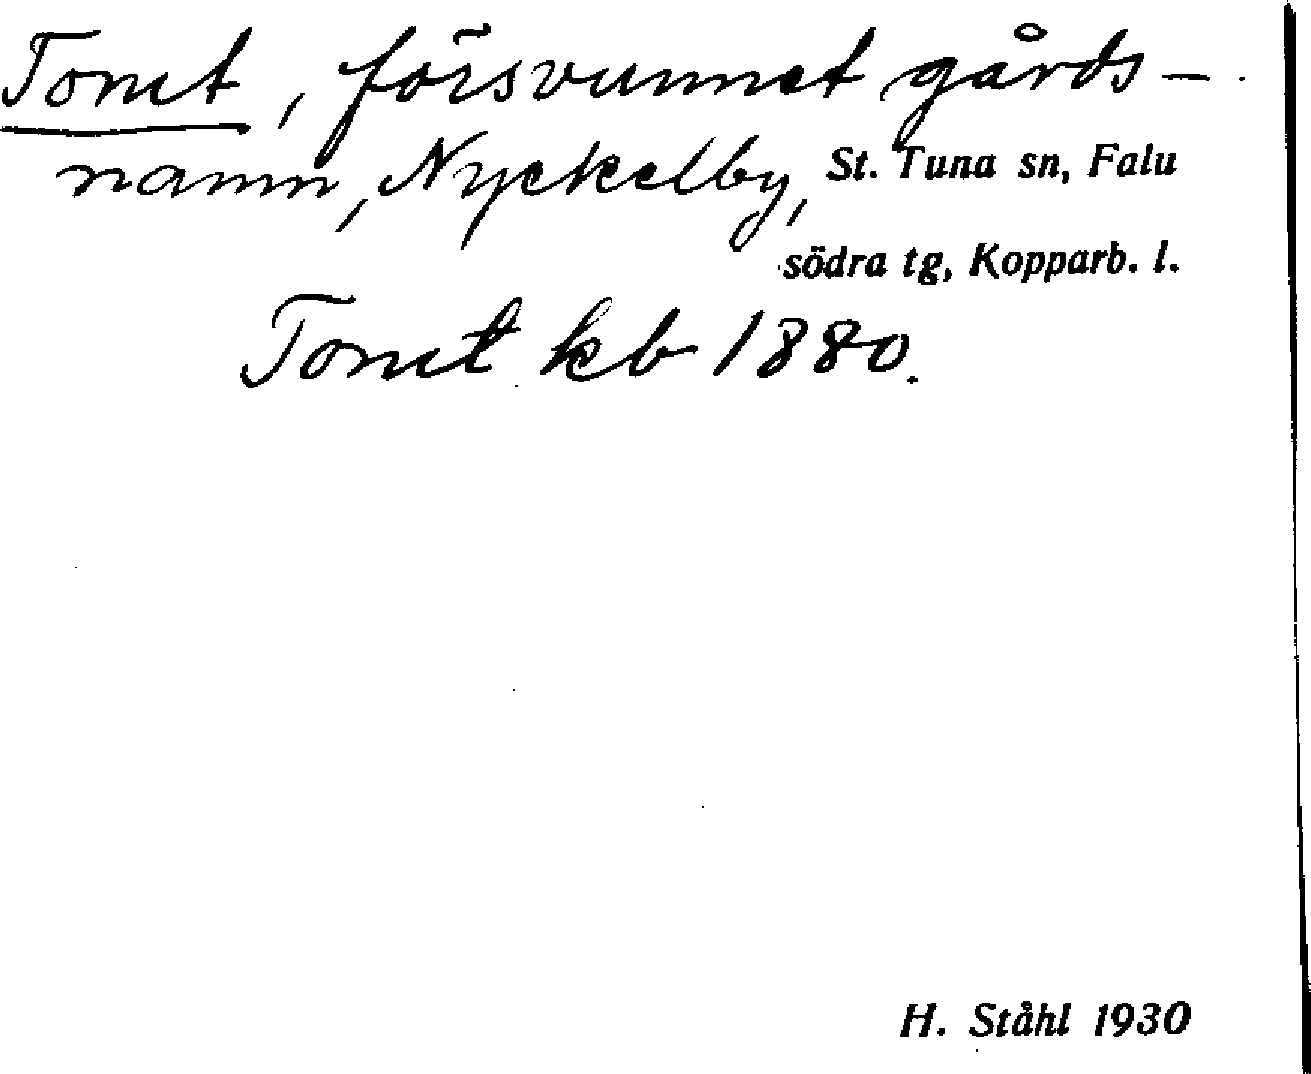 Tomt, försvunnet gårds-
namn, Nyckelby, St. Tuna sn, Falu
södra tg, Kopparb. l.
Tomt kb 1880.
H. Ståhl 1930